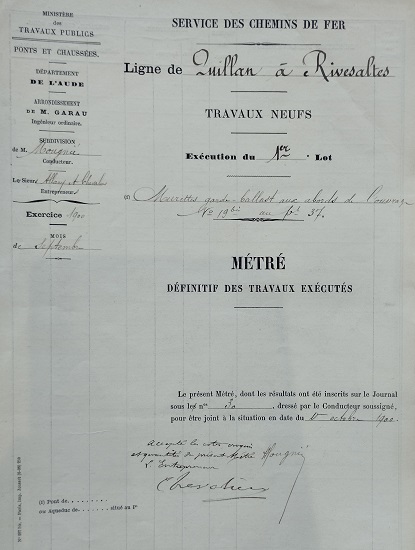 MINISTÈRE
des
TRAVAUX PUBLICS
PONTS ET CHAUSSÉES.
DÉPARTEMENT
DE L'AUDE
ARRONDISSEMENT
DE M. GARAU
Ingénieur ordinaire.
SUBDIVISION
de M. Mouguié
Conducteur.
Le Sieur
Entrepreneur
Exercice 1900
MOIS
de Septembre
SERVICE DES CHEMINS DE FER
Ligne de Quillan à Rivesaltes
TRAVAUX NEUFS
Exécution du 1er Lot
(1) Murettes garde-ballast aux abords de l'ouvrage
No 19bis au pt 37.
MÉTRÉ
DÉFINITIF DES TRAVAUX EXÉCUTÉS
Le présent Métré, dont les résultats ont été inscrits sur le Journal
sous les nos 30, dressé par le Conducteur soussigné,
pour être joint à la situation en date du 1er octobre 1900
Accepté les
et quantités du présent Métré
L'Entrepreneur
Chevalier
Mouguié
(1) Pont de
ou Aqueduc de situé au Pt